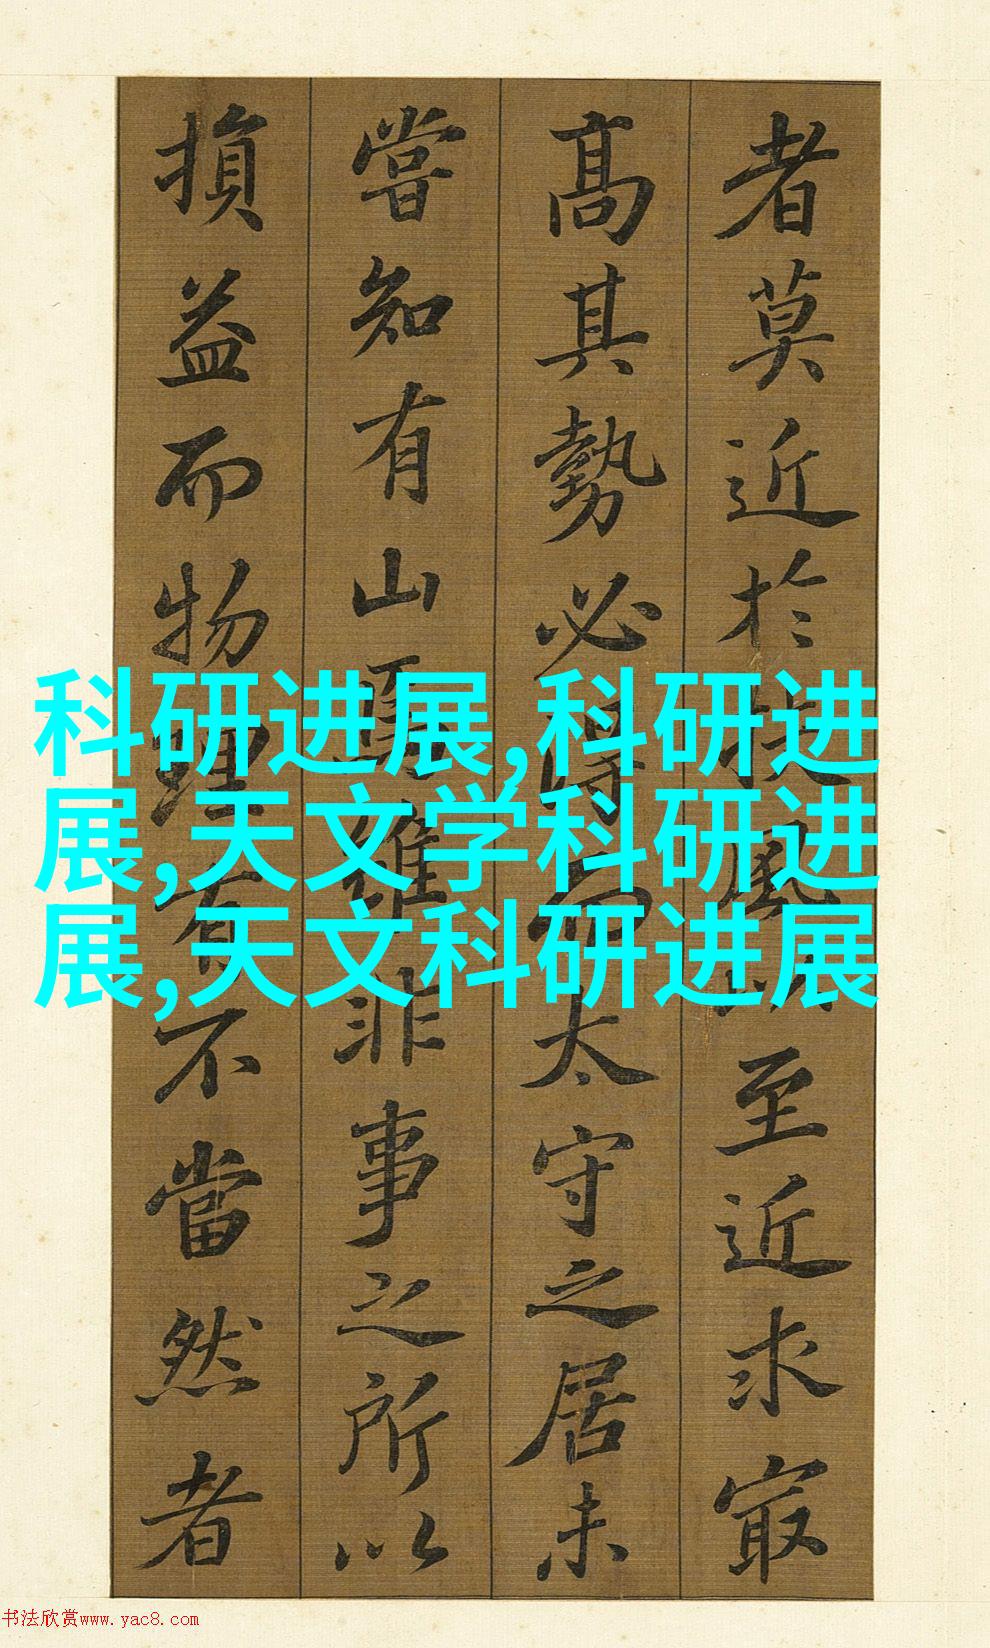 者莫近於扶風以至近求㝡
高其勢必得而太守之居未
嘗知有山焉雖非事之所以
損益而物理有不當然者
科研进展,科研进
展,天文学科研进
展,天文科研进展
书法欣赏www.yac8.com